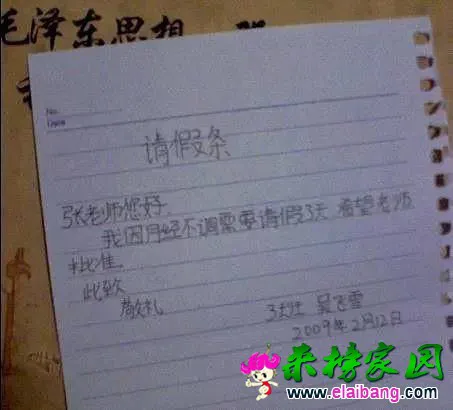 毛泽东思想
No.
Date
请假条
张老师您好
我因月经不调需要请假3天 希望老师
批准
此致
敬礼
吴飞雪
2009年2月12日
来榜家网
www.elaibang.com